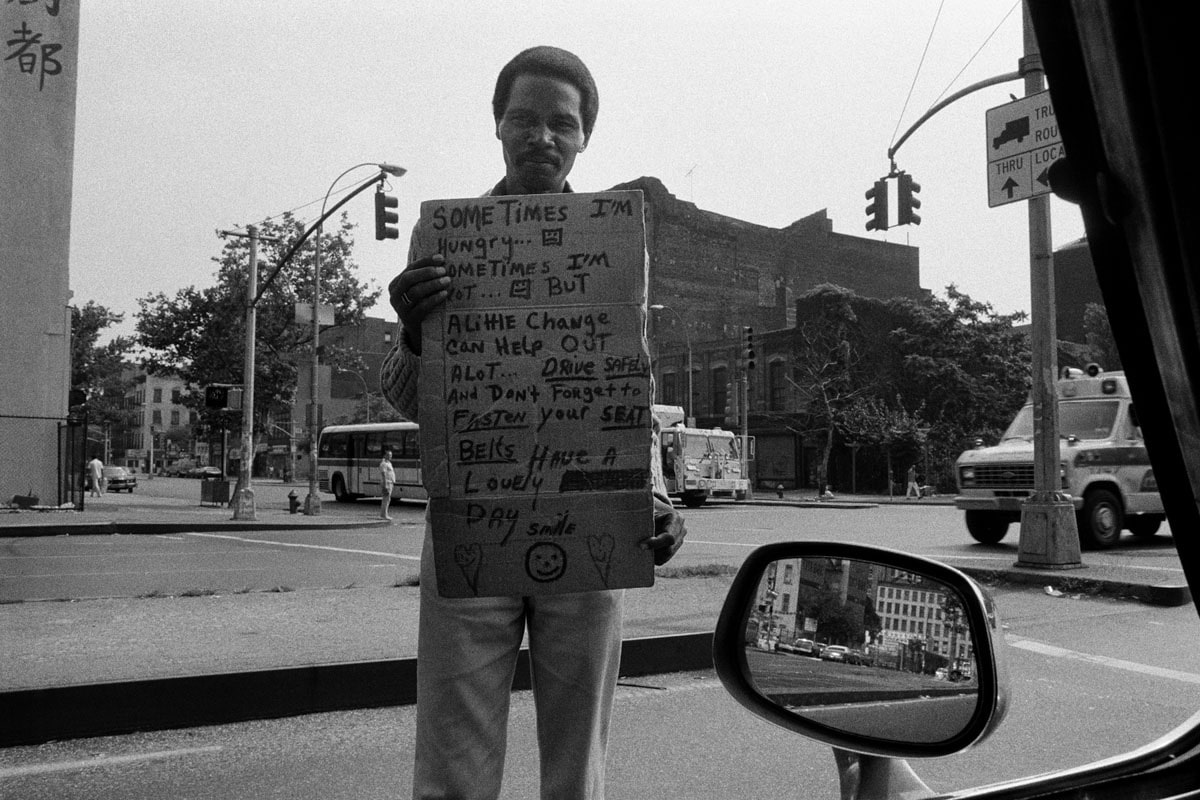 都
SOMETIMES I'M
HUNgry...
SOMETIMES I'M
NOT... BUT
A LittlE Change
CAN HElp OUT
ALOT... DRIVE SAFELy
AND DON'T FORgEt to
FASTEN your SEAT
BELts HAVE A
LOVEly
DAY SMilE
TRU
ROU
THRU LOCA